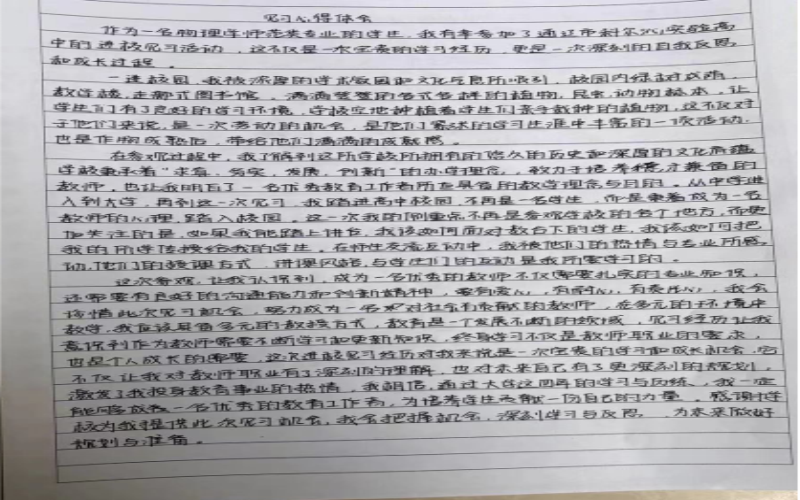 见习心得体会
作为一名物理学师范类专业的学生，我有幸参加了通辽市科尔沁实验高
中的进校见习活动，这不仅是一次宝贵的学习经历，更是一次深刻的自我反思
和成长过程。
一进校园，我被浓厚的学术氛围和文化气息所吸引，校园内绿树成荫，
教学楼，走廊式图书馆，满满登登的各式各样的植物，昆虫，动物标本，让
学生们有了良好的学习环境，学校空地种植着学生们亲手栽种的植物，这不仅对
于他们来说，是一次劳动的机会，是他们紧张的学习生涯中丰富的一次活动，
也是作物成熟后，带给他们满满的成就感。
在参观过程中，我了解到这所学校所拥有的悠久的历史和深厚的文化底蕴
学校秉承着“求真，务实，发展，创新”的办学理念，致力于培养德才兼备的
教师，也让我明白了一名优秀教育工作者所应具备的教学理念与目的。从中学进
入到大学，再到这一次见习，我踏进高中校园，不再是一名学生，而是乘着成为一名
教师的心理，踏入校园。这一次我的侧重点不再是参观学校的各个地方，而更
加关注的是，如果我能踏上讲台，我该如何面对教台下的学生，我该如何把
我的所学传授给我的学生。在师生交流互动中，我被他们的热情与专业所感
动，他们的授课方式，讲课风格，与学生们的互动是我所要学习的。
这次参观，让我认识到，成为一名优秀的教师不仅需要扎实的专业知识，
还需要有良好的沟通能力和创新精神，要有爱心，有耐心，有责任心，我会
珍惜此次见习机会，努力成为一名对社会有贡献的教师，在多元的环境中
教学，我应该具备多元的教授方式，教育是一个发展不断的领域，见习经历让我
意识到作为教师需要不断学习和更新知识，终身学习不仅是教师职业的要求，
也是个人成长的需要，这次进校见习经历对我来说是一次宝贵的学习和成长机会，它
不仅让我对教师职业有了深刻的理解，也对未来自己有了更深刻的规划，
激发了我投身教育事业的热情，我相信，通过大学这四年的学习与历练，我一定
能够成为一名优秀的教育工作者，为培养学生贡献一份自己的力量。感谢学
校为我提供此次见习机会，我会把握机会，深刻学习与反思，为未来做好
规划与准备。